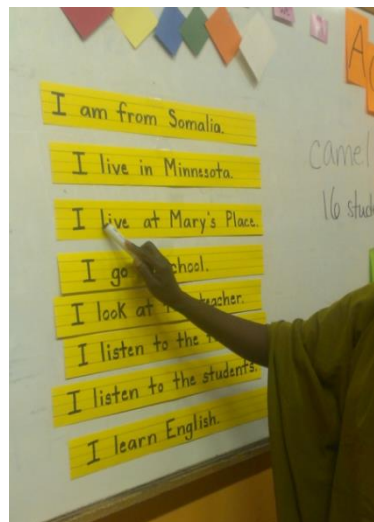 I am from Somalia.
I live in Minnesota.
I live at Mary's Place.
I go school.
I look at teacher.
I listen to the
I listen to the students.
I learn English.
camel
16